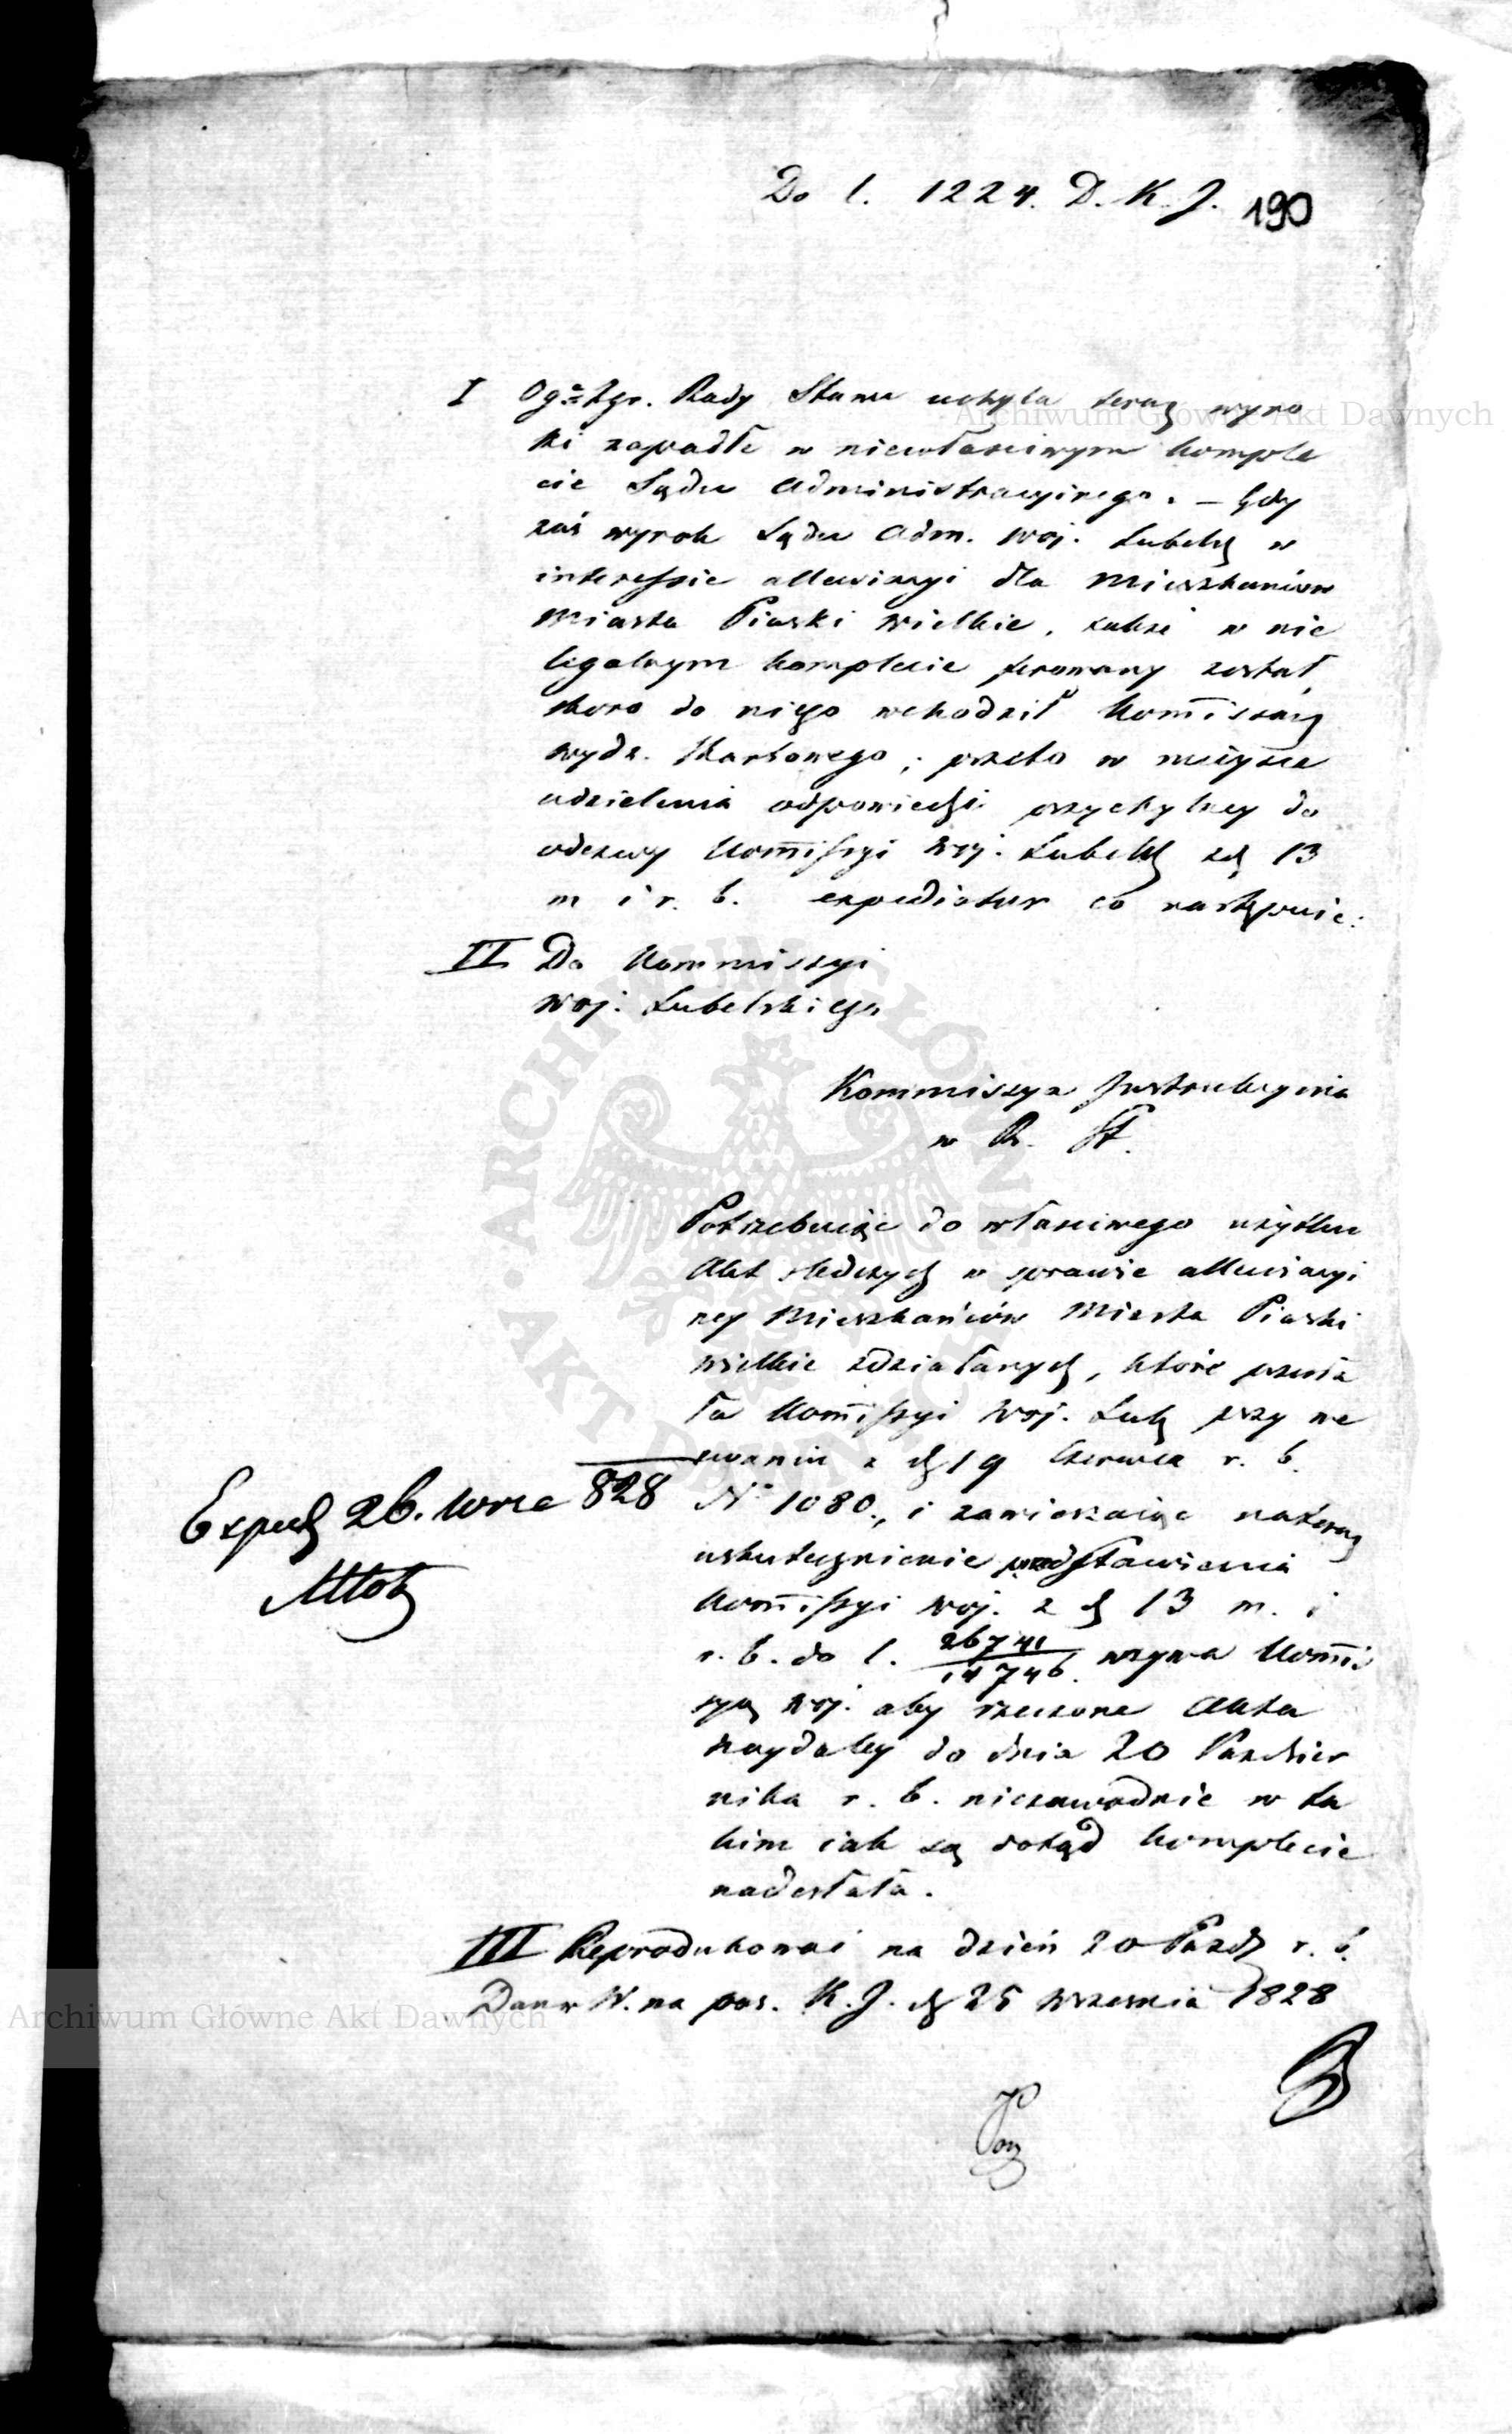 Do l. 1224. D. K. J. 190
I Ogº Zgr. Rady Stanu uchyla teraz wyro
ki zapadłe w niewłaściwym komple
cie Sądu Administracyinego. – Gdy
zaś wyrok Sądu Adm. woj. Lubelsk w
interessie allewiacyi dla Mieszkańców
Miasta Piaski wielkie, także w nie
legalnym komplecie ferowany został
skoro do niego wchodził Kommissarz
wydz. Skarbowego; przeto w mieysce
udzielenia odpowiedzi przychylney do
odezwy Kommissyi woj. Lubelsk z d. 13
m i r. b. expediatur co następuie:
II Do Kommissyi
woj. Lubelskiego
Kommissya Instrukcyina
w R. St.
Potrzebuiąc do właściwego użytku
Akt śledczych w sprawie allewiacyi
ney Mieszkańców Miasta Piaski
wielkie zdziałanych, które przesła
ła Kommissyi Woj. Lub. przy we
zwaniu z d. 19 Czerwca r. b.
Nº 1080., i zawieszaiąc na teraz
uskutecznienie przedstawienia
Kommissyi woj. z d. 13 m. i
r. b. do l. 26741/14746. wzywa Kommis
syą woj. aby rzeczone Akta
naydaley do dnia 20 Paździer
nika r. b. niezawodnie w ta
kim iak są dotąd komplecie
nadesłała.
Exped. 26. 828
III Reprodukować na dzień 20 Paźdz r. b.
Dan w W. na pos. K. J. d. 25 Września 1828
Archiwum Główne Akt Dawnych
Archiwum Główne Akt Dawnych
ARCHIWUM GŁÓWNE AKT DAWNYCH